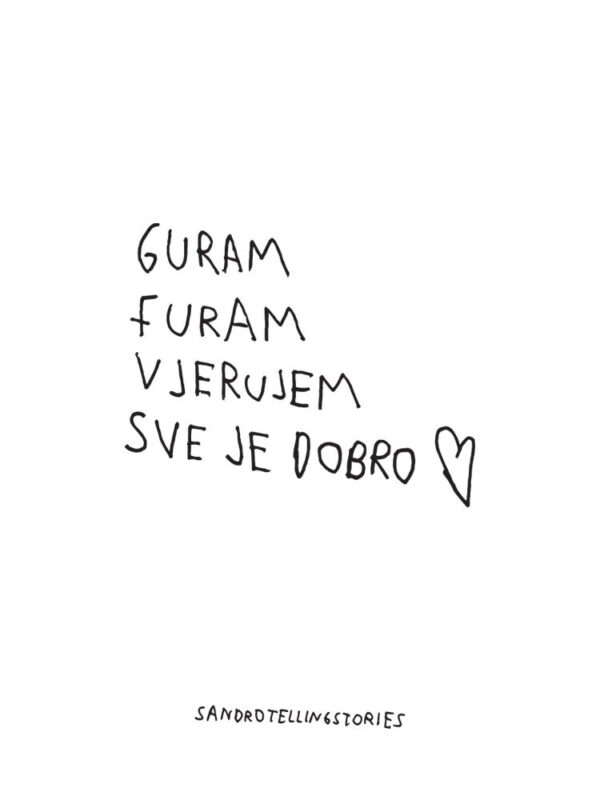 GURAM
FURAM
VJERUJEM
SVE JE DOBRO ♡
SANDROTELLINGSTORIES